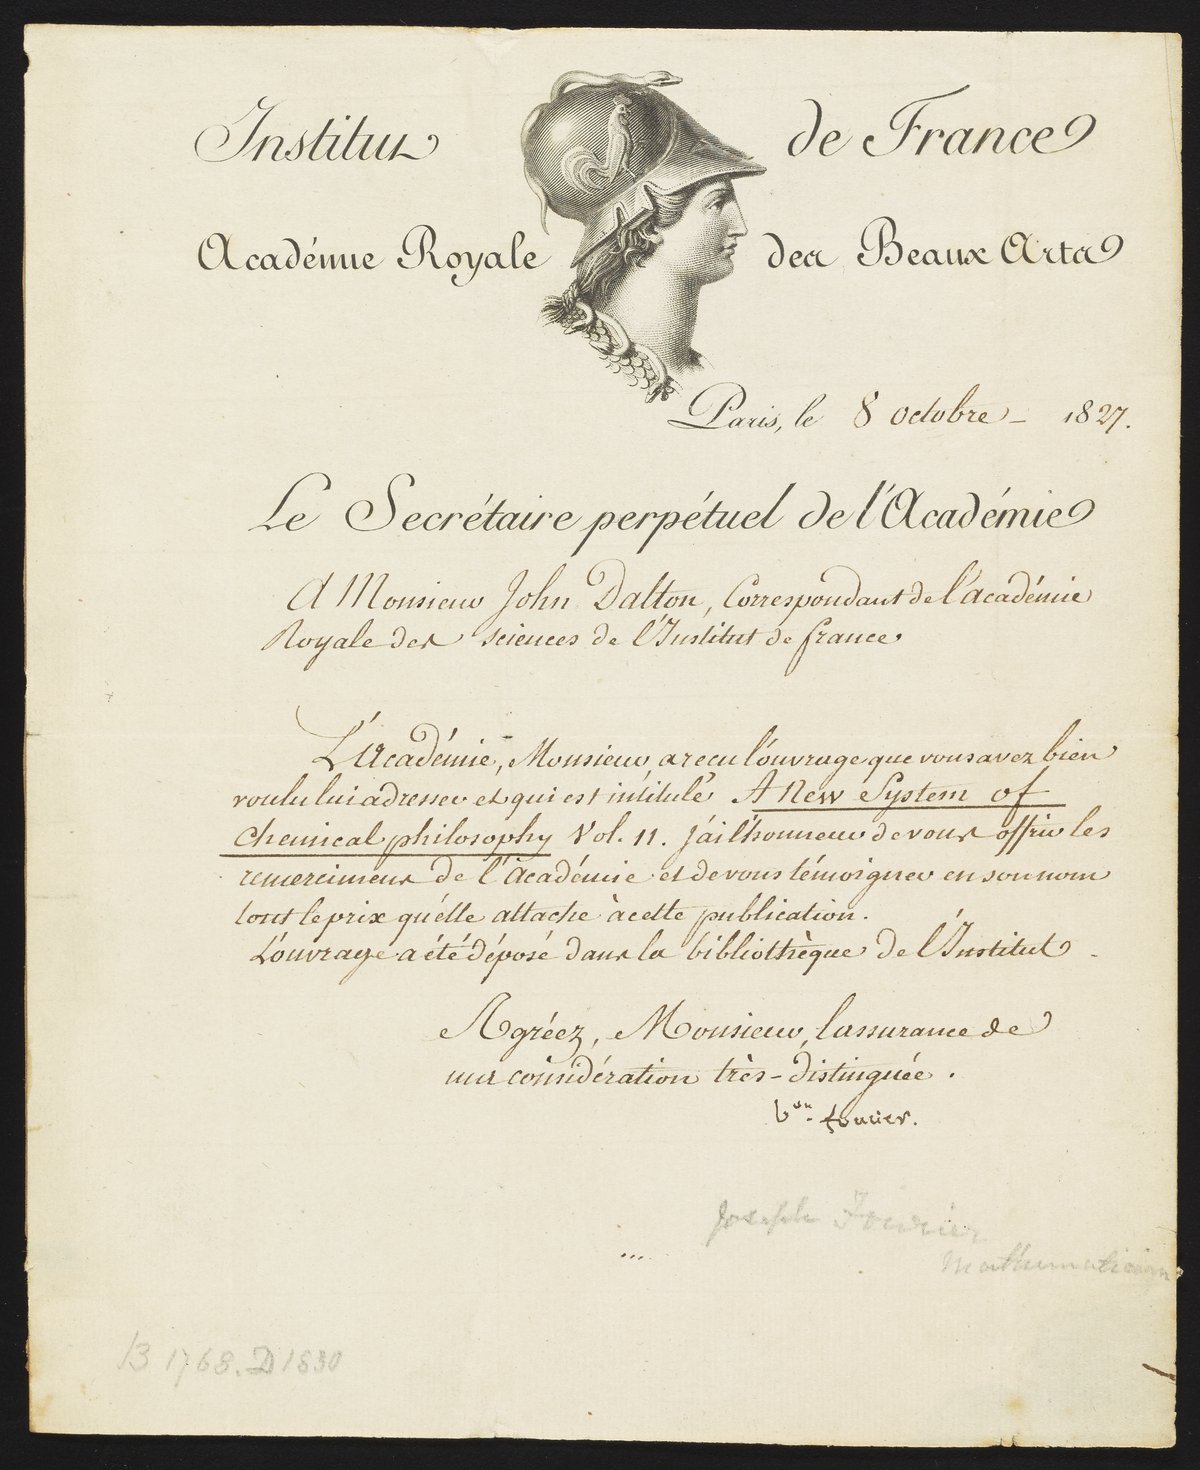 Institut de France
Académie Royale des Beaux Arts
Paris, le 8 octobre - 1827.
Le Secrétaire perpétuel de l'Académie
A Monsieur John Dalton, Correspondant de l'académie
Royale des sciences de l'Institut de france
L'Académie, Monsieur, a recu l'ouvrage que vous avez bien
voulu lui adresser et qui est intitulé A New System of
Chemical philosophy Vol. 11. J'ai l'honneur de vous offrir les
remercimens de l'académie et de vous témoigner en son nom
tout le prix qu'elle attache à cette publication.
L'ouvrage a été déposé dans la bibliothèque de l'Institut.
Agréez, Monsieur, l'assurance de
ma considération très-distinguée.
Bon. fourier.
Joseph Fourier
Mathematician
B 1768. D 1830